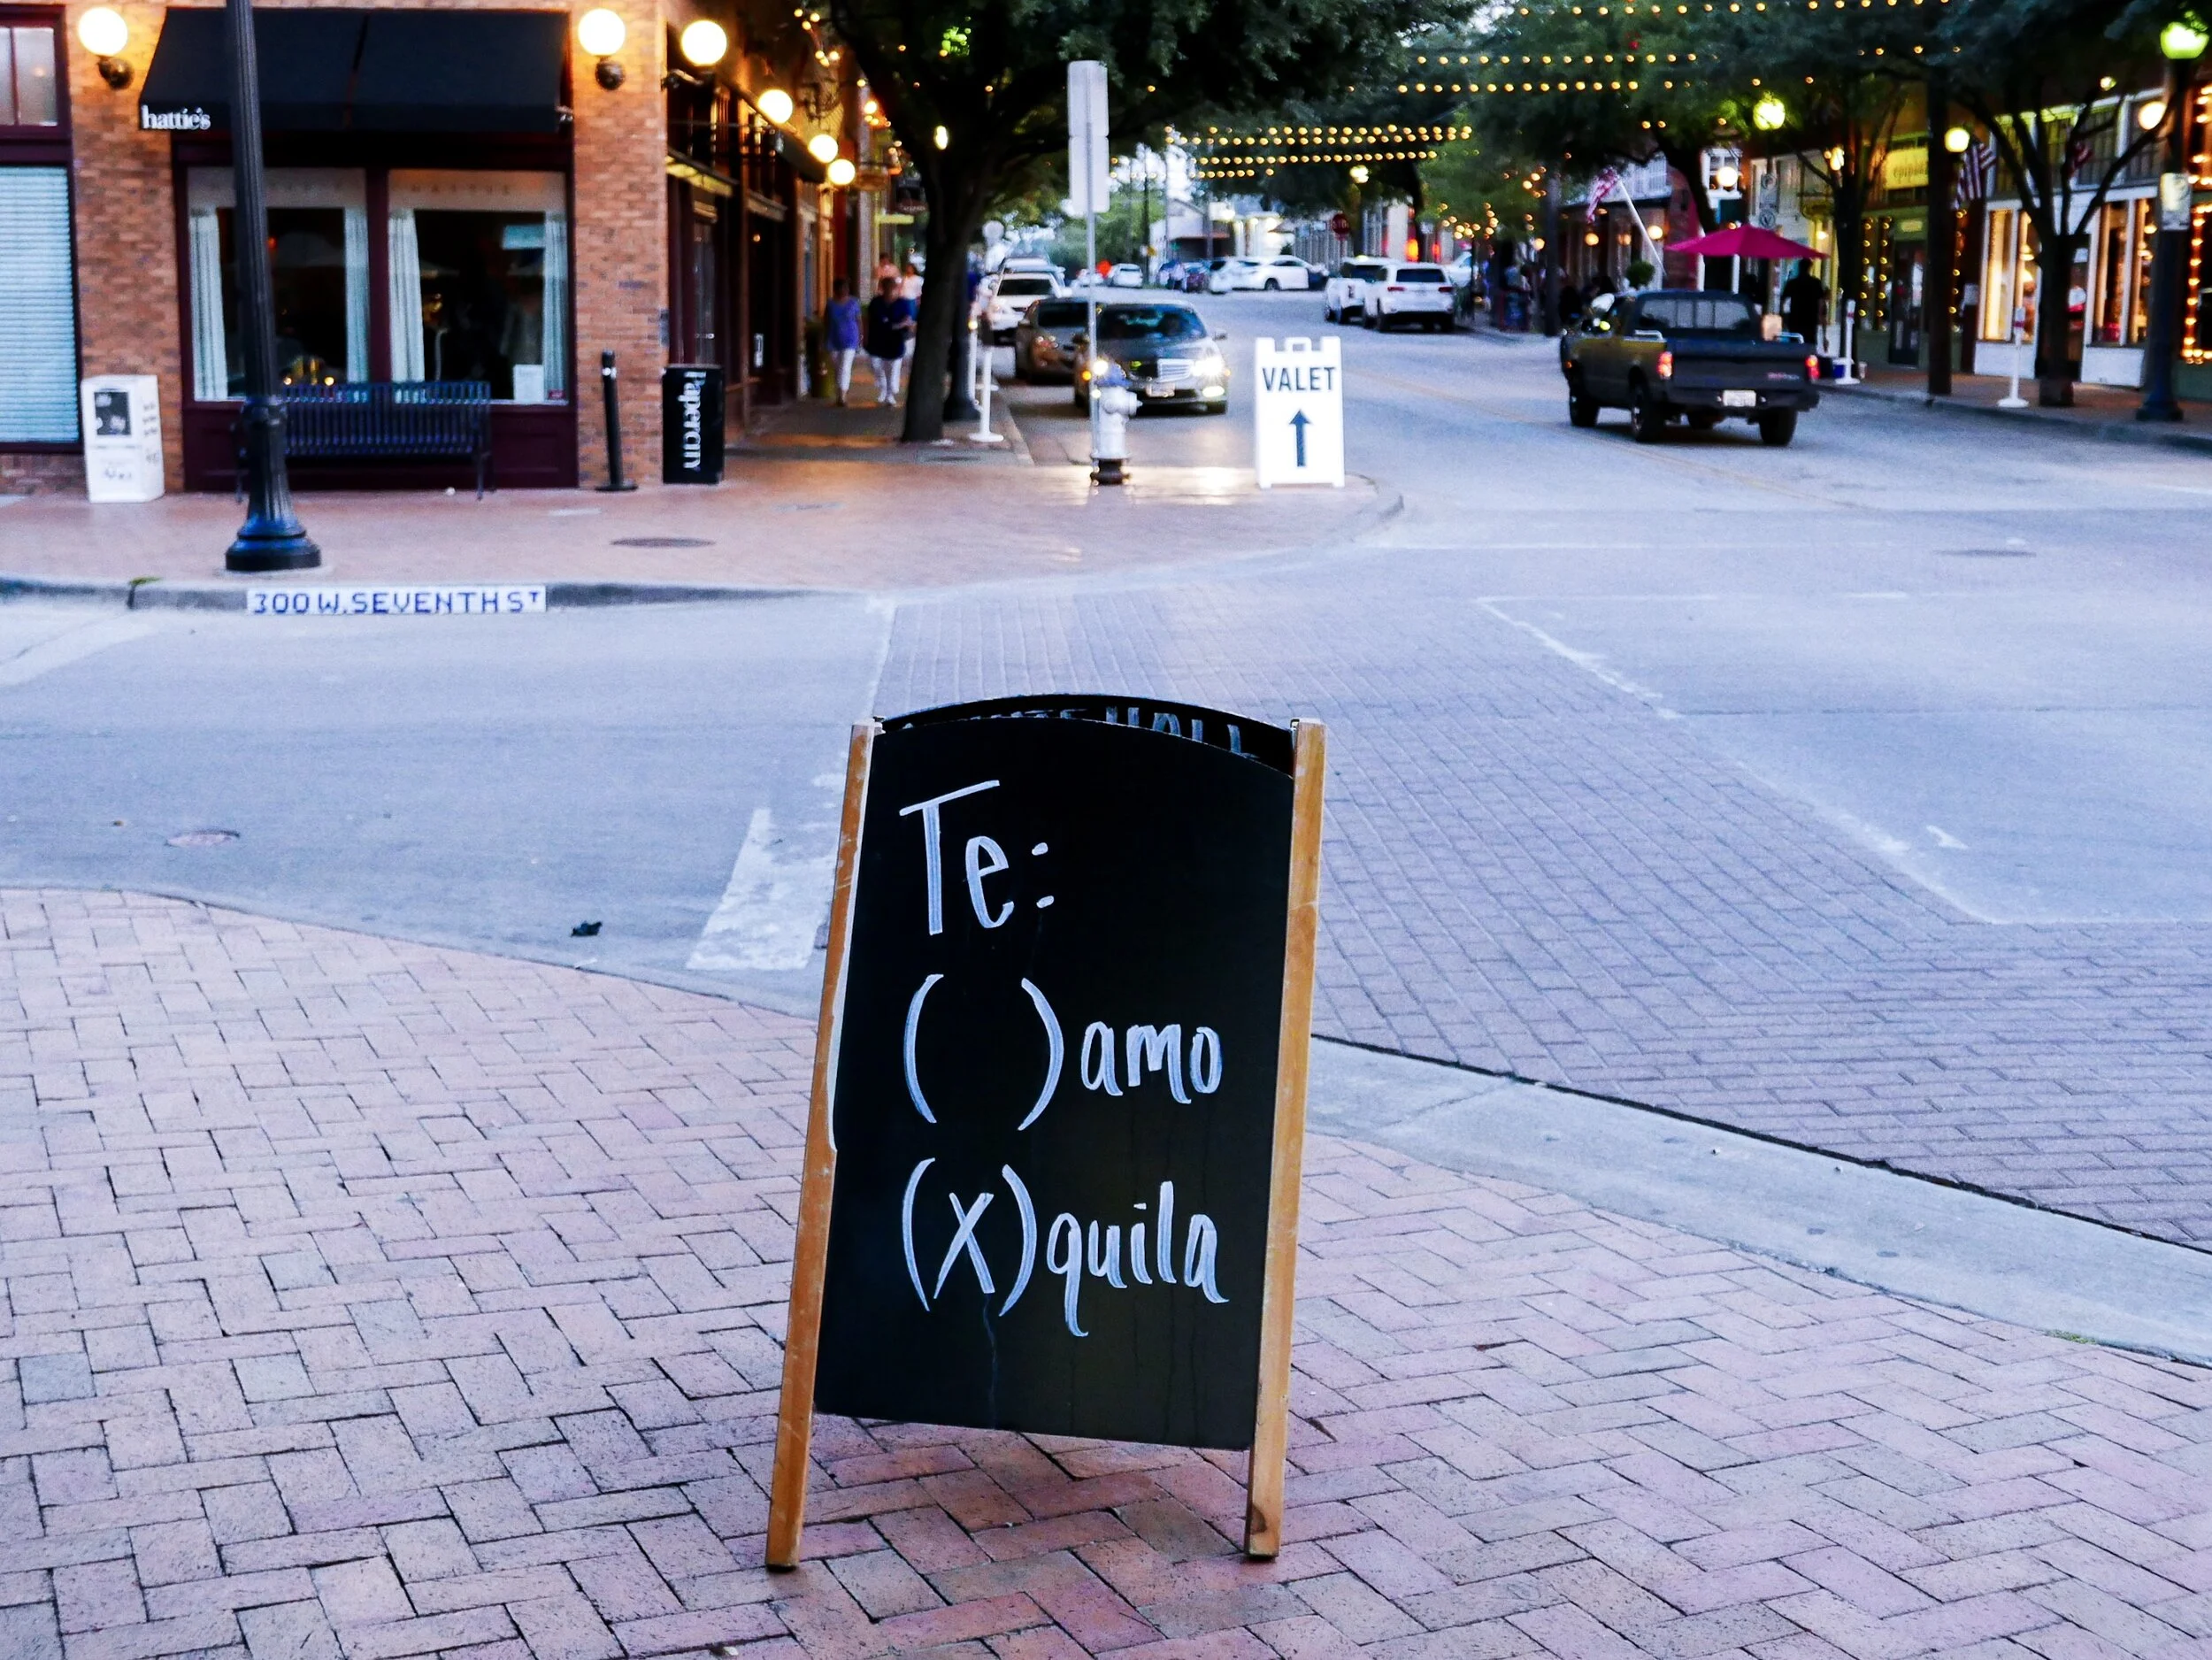 hattie's
papercity
VALET
300 W. SEVENTH ST
Te:
( ) amo
(X) quila